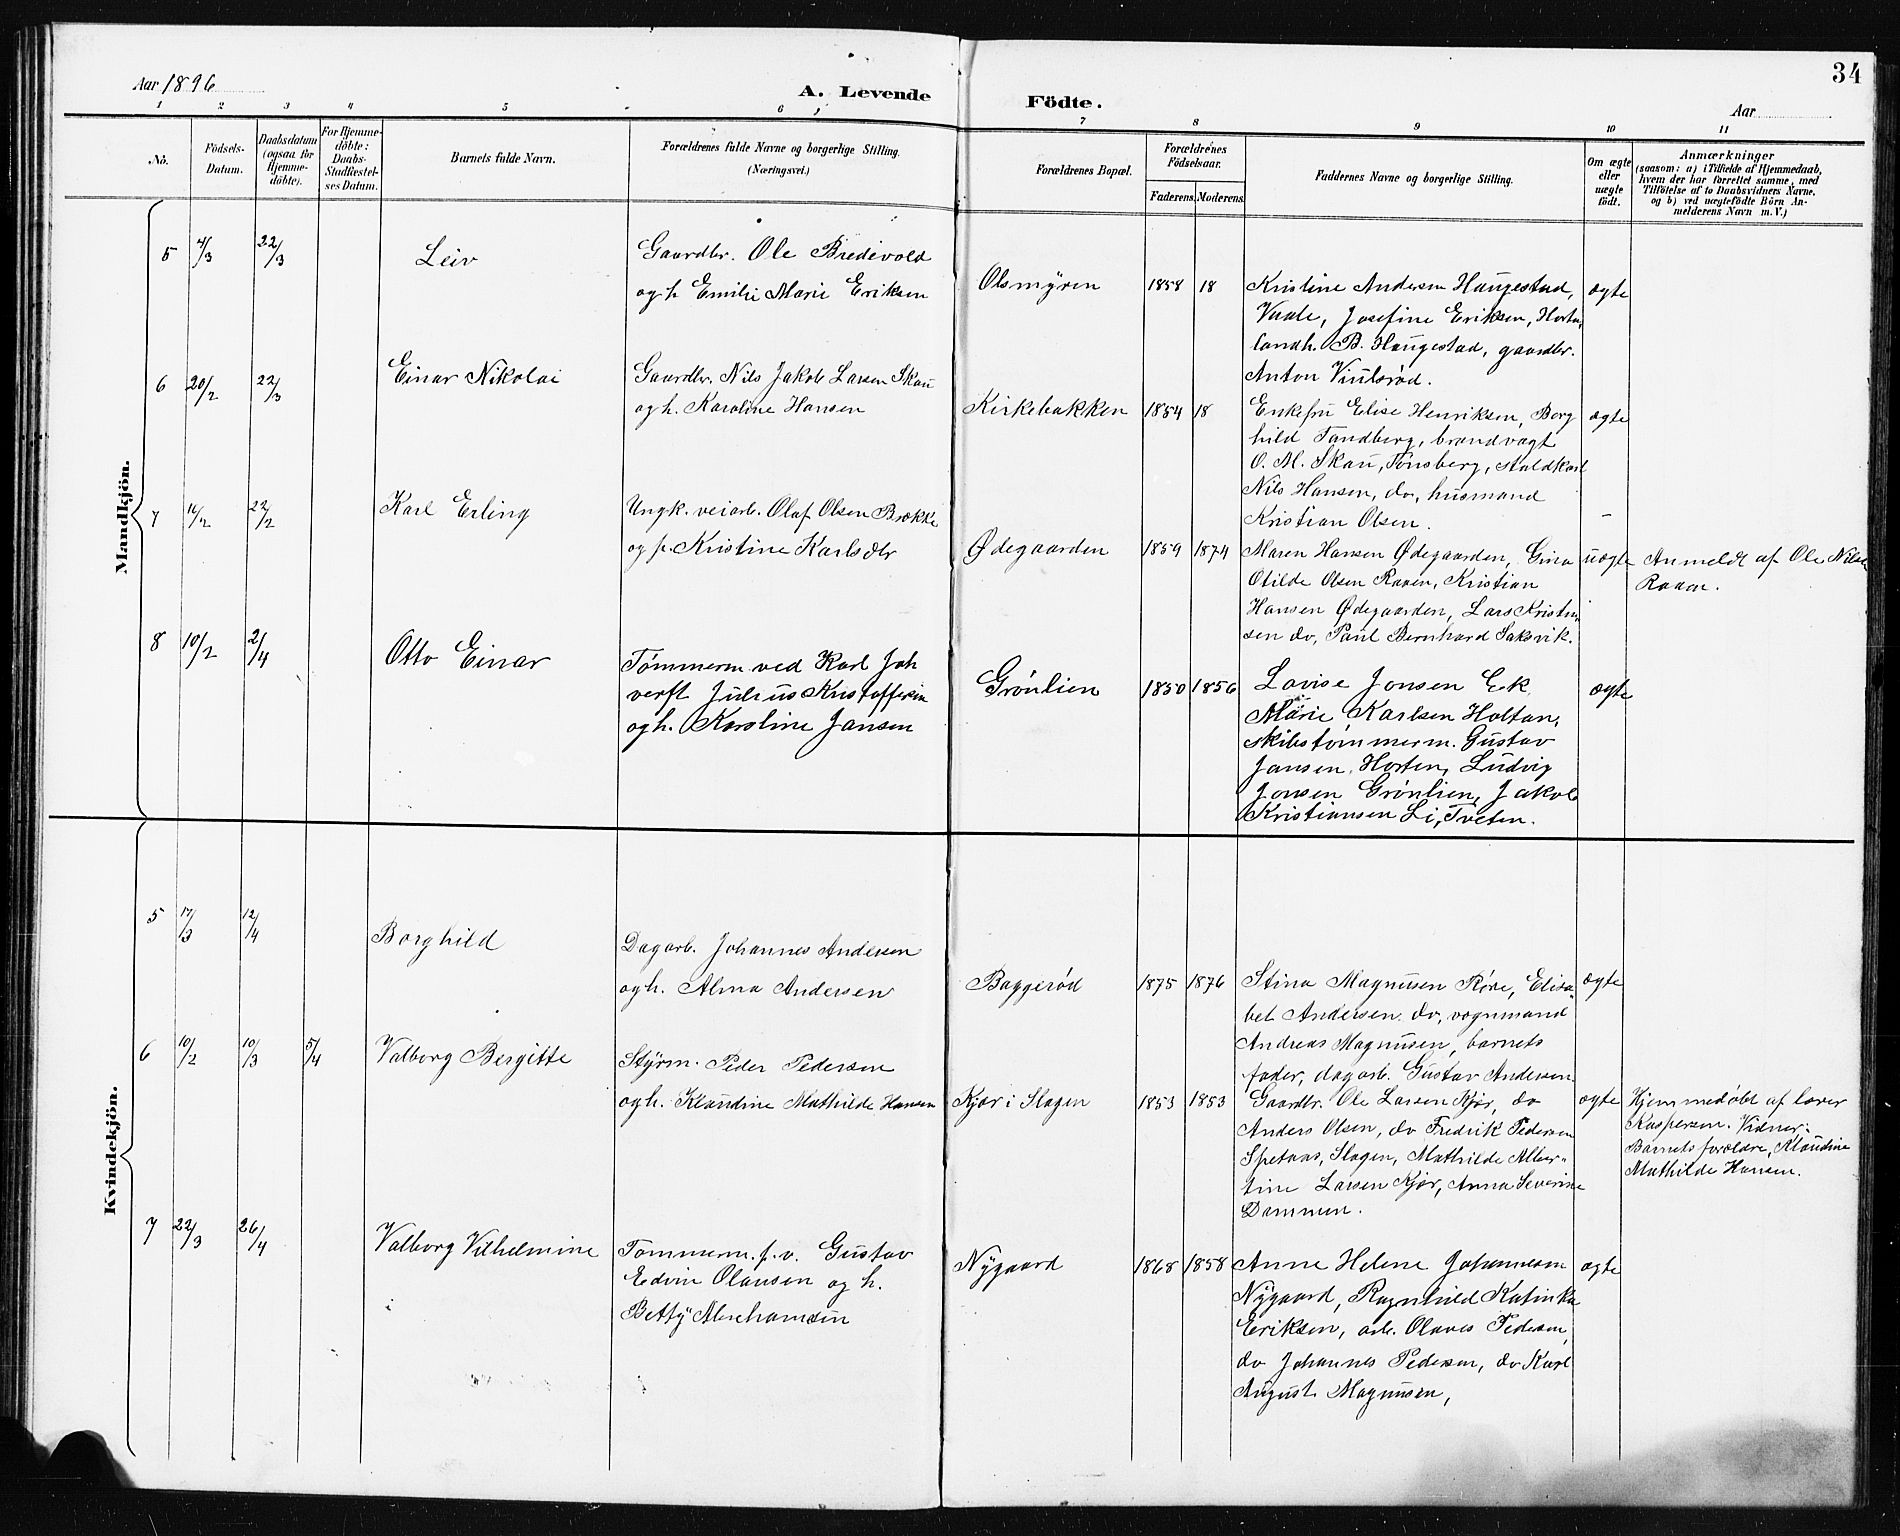 34
Aar 1896
A. Levende
Födte.
Aar
1 2 3 4 5 6 7 8 9 10 11
No.
Födsels-
Datum.
Daabsdatum
(ogsaa for
Hjemme-
döbte).
For Hjemme-
döbte:
Daabs-
Stadfæstel-
ses Datum.
Barnets fulde Navn.
Forældrenes fulde Navne og borgerlige Stilling.
(Næringsvei.)
Forældrenes Bopæl.
Forældrenes
Födselsaar.
Faderens. Moderens.
Faddernes Navne og borgerlige Stilling.
Om ægte
eller
uægte
født.
Anmærkninger
(saasom: a) i Tilfælde af Hjemmedaab,
hvem der har forrettet samme, med
Tilföielse af to Daabsvidners Navne,
og b) ved uægtefödte Börn An-
melderens Navn m. V.)
Mandkjön.
5 4/3 22/3 Leiv
Gaardbr. Ole Bredevold
og h. Emilie Marie Eriksen
Olsmyren 1858 18
Kristine Andersen Haugestad,
Vaale, Josefine Eriksen, Horten,
landh. B. Haugestad, gaardbr.
Anton Viulsrød.
ægte
6 20/2 22/3 Einar Nikolai
Gaardbr. Nils Jakob Larsen Skau
og h. Karoline Hansen
Kirkebakken 1854 18
Enkefru Elise Henriksen, Borg
hild Tandberg, brandvagt
O. M. Skau, Tønsberg, staldkarl
Nils Hansen, do, husmand
Kristian Olsen.
ægte
7 16/2 22/2 Karl Erling
Ungk. veiarb. Olaf Olsen Brække
og p. Kristine Karlsdtr
Ødegaarden 1859 1874
Maren Hansen Ødegaarden, Gina
Otilde Olsen Raaen, Kristian
Hansen Ødegaarden, Lars Kristian
sen do, Paul Bernhard Saksvik.
uægte
Anmeldt af Ole Nilsen
Raaen.
8 10/2 2/4 Otto Einar
Tømmerm ved Karl Joh
verft Julius Kristoffersen
og h. Karoline Jansen
Grønlien 1850 1856
Lovise Jonsen Ek,
Marie Karlsen Holtan,
skibstømmerm. Gustav
Jansen, Horten, Ludvig
Jonsen Grønlien, Jakob
Kristiansen Li, Tveten.
ægte
Kvindekjön.
5 17/3 12/4 Borghild
Dagarb. Johannes Andersen
og h. Alma Andersen
Baggerød 1875 1876
Stina Magnusen Røre, Elisa-
bet Andersen do, vognmand
Andreas Magnusen, barnets
fader, dagarb. Gustav Andersen.
ægte
6 10/2 10/3 5/4 Valborg Bergitte
Styrm. Peder Pedersen
og h. Klaudine Mathilde Hansen
Kjær i Slagen 1853 1853
Gaardbr. Ole Larsen Kjær, do
Anders Olsen, do Fredrik Pedersen
Spetaas, Slagen, Mathilde Alber-
tine Larsen Kjær, Anna Severine
Dammen.
ægte
Hjemmedøbt af lærer
Kaspersen. Vidner:
Barnets forældre, Klaudine
Mathilde Hansen.
7 22/3 26/4 Valborg Vilhelmine
Tømmerm. f. v. Gustav
Edvin Olausen og h.
Betty Abrahamsen
Nygaard 1868 1858
Anne Helene Johannesen
Nygaard, Ragnhild Katinka
Eriksen, arb. Olaves Pedersen,
do Johannes Pedersen, do Karl
August Magnusen,
ægte